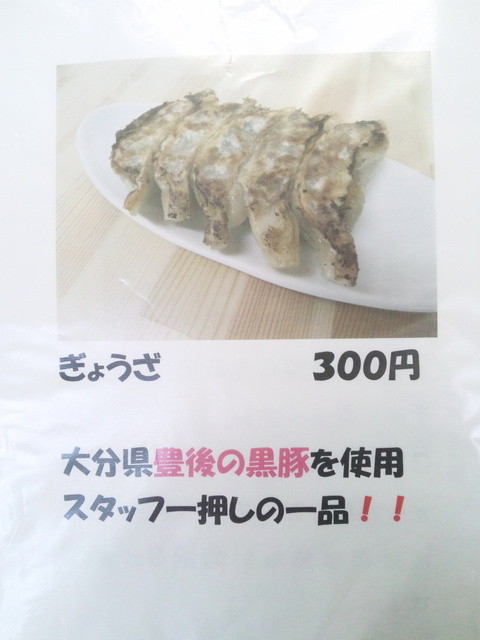 ぎょうざ 300円
大分県豊後の黒豚を使用
スタッフ一押しの一品！！